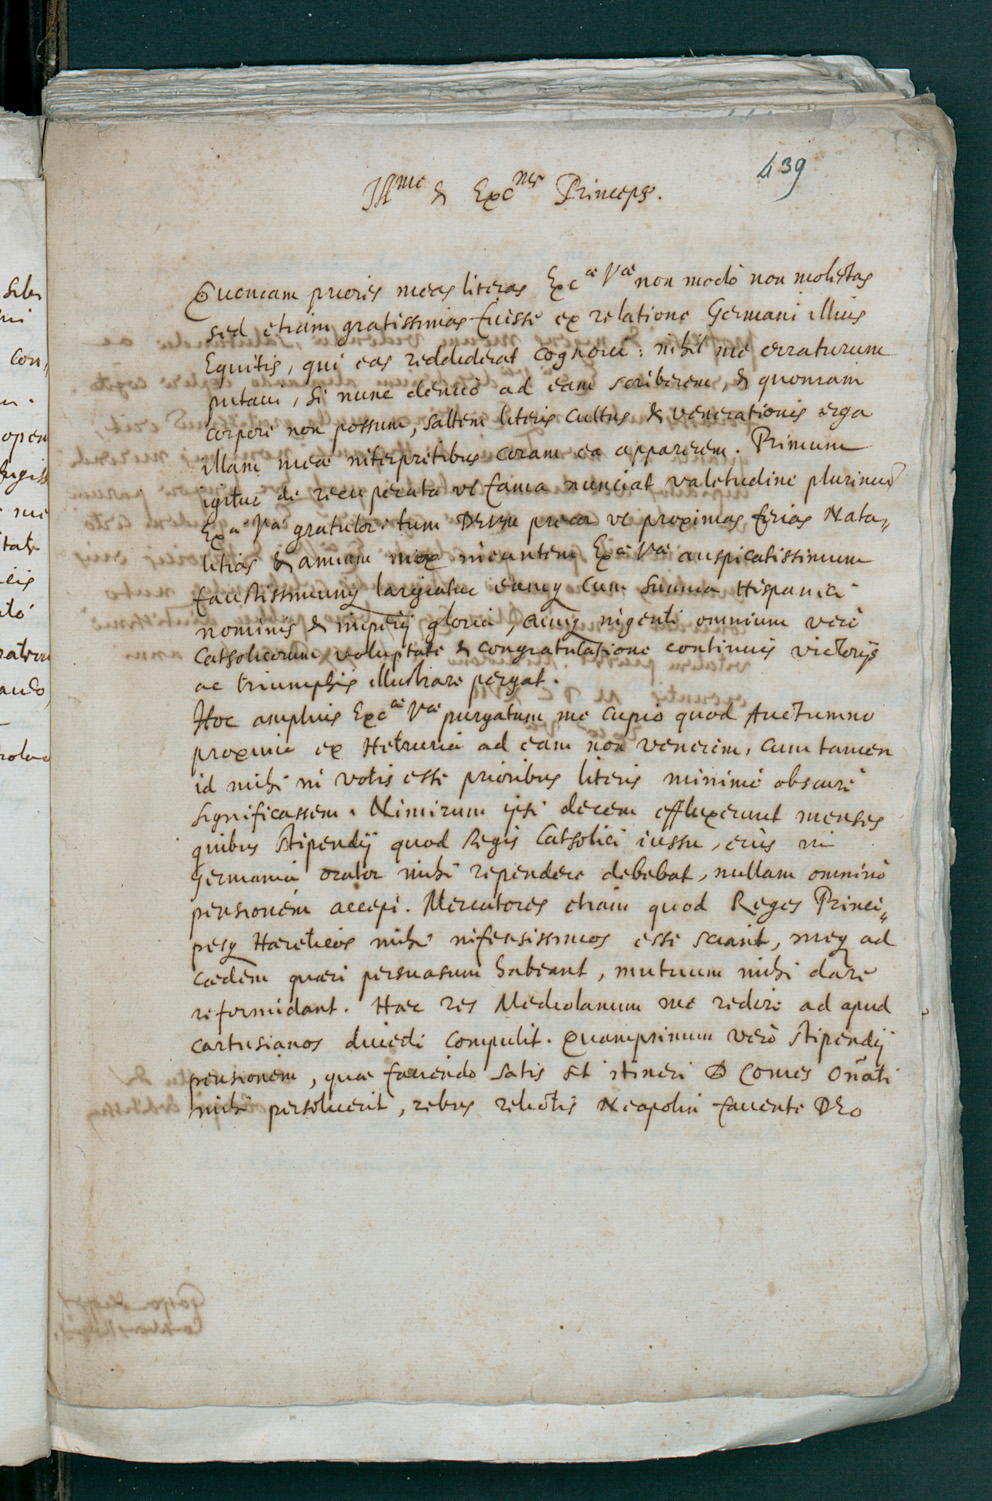 439
Ill^me & Exc^me Princeps.
Quoniam priores meas literas Exc^ae V^ae non modò non molestas
sed etiam gratissimas fuisse ex relatione Germani illius
Equitis, qui eas reddiderat cognovi: nihil me erraturum
putavi, si nunc denuò ad eam scriberem, & quoniam
corpore non possum, saltem literis cultus & venerationis erga
illam meae interpretibus coram ea apparerem. Primum
igitur de recuperata ut fama nunciat valetudine plurimum
Exc^ae V^ae gratulor: tum DEUM precor ut proximas ferias Nata,,
litias & annum mox ineuntem Exc^ae V^ae auspicatissimum
faustissimumq largiatur eamq cum summa Hispanici
nominis & imperij gloria, ingenti omnium verè
Catholicorum voluptate & congratulatione continuis victorijs
ac triumphis illustrare pergat.
Hoc amplius Exc^ae V^ae purgatum me cupio quod Auctumno
proximè ex Hetruria ad eam non venerim, cum tamen
id mihi in votis esse prioribus literis minimè obscurè
significassem. Nimirum ipsi decem effluxerunt menses
quibus stipendij quod Regis Catholici iussu, eius in
Germania orator mihi rependere debebat, nullam omninò
pensionem accepi. Mercatores etiam quod Reges Princi,,
pesq Haereticos mihi infensissimos esse sciant, meq ad
caedem quaeri persuasum habeant, mutuum mihi dare
reformidant. Haec res Mediolanum me redire ad apud
cartusianos divedi compulit. Quamprimum verò stipendij
pensionem, quae faciendo satis sit itineri D Comes Oñati
mihi persolverit, rebus relictis Neapolim favente DEO